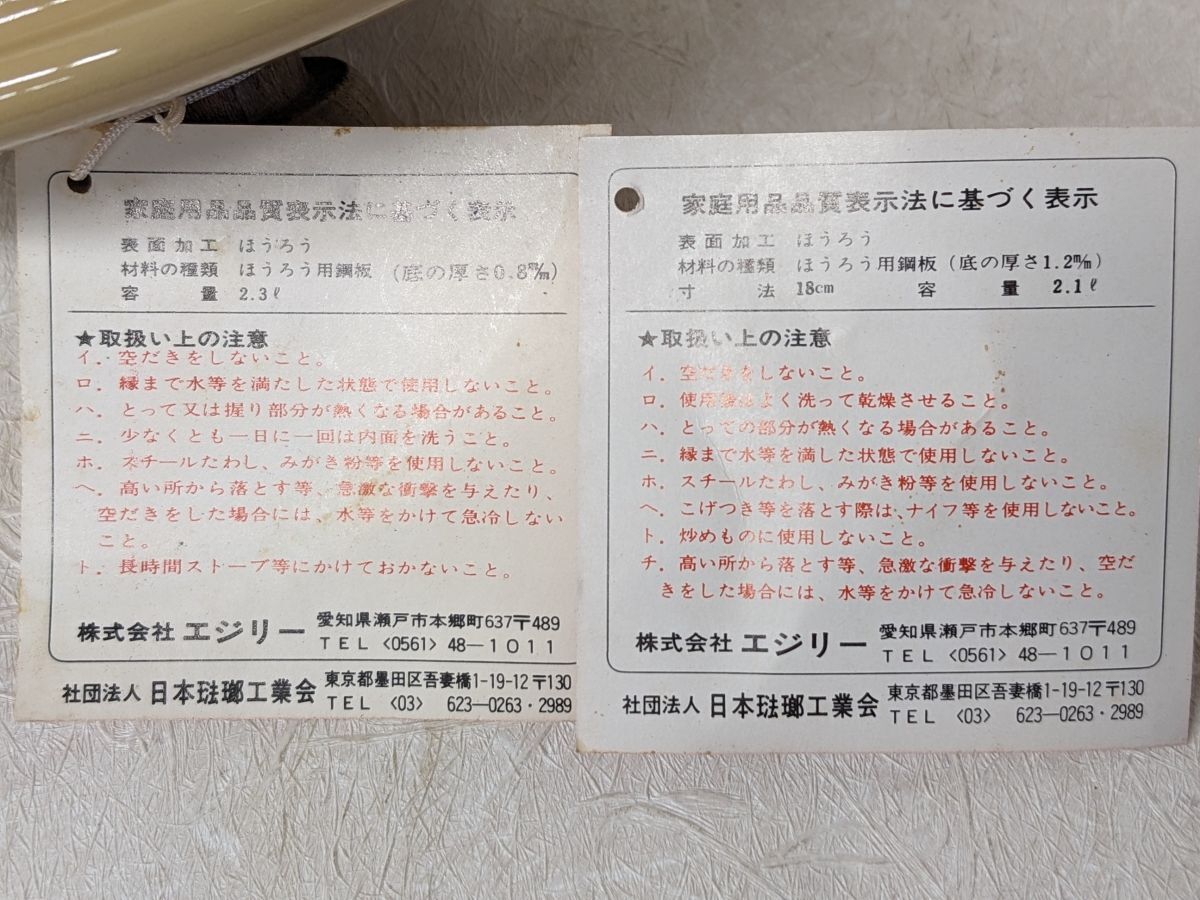 家庭用品品質表示法に基づく表示
表面加工 ほうろう
材料の種類 ほうろう用鋼板 (底の厚さ0.8㎜)
容量 2.3ℓ
★取扱い上の注意
イ. 空だきをしないこと。
ロ. 縁まで水等を満たした状態で使用しないこと。
ハ. とって又は握り部分が熱くなる場合があること。
ニ. 少なくとも一日に一回は内面を洗うこと。
ホ. スチールたわし、みがき粉等を使用しないこと。
ヘ. 高い所から落とす等、急激な衝撃を与えたり、
空だきをした場合には、水等をかけて急冷しない
こと。
ト. 長時間ストーブ等にかけておかないこと。
株式会社 エジリー 愛知県瀬戸市本郷町637〒489
TEL <0561> 48―1011
社団法人 日本琺瑯工業会 東京都墨田区吾妻橋1-19-12〒130
TEL <03> 623―0263・2989
家庭用品品質表示法に基づく表示
表面加工 ほうろう
材料の種類 ほうろう用鋼板 (底の厚さ1.2㎜)
寸法 18cm 容量 2.1ℓ
★取扱い上の注意
イ. 空だきをしないこと。
ロ. 使用後はよく洗って乾燥させること。
ハ. とっての部分が熱くなる場合があること。
ニ. 縁まで水等を満した状態で使用しないこと。
ホ. スチールたわし、みがき粉等を使用しないこと。
ヘ. こげつき等を落とす際は、ナイフ等を使用しないこと。
ト. 炒めものに使用しないこと。
チ. 高い所から落とす等、急激な衝撃を与えたり、空だ
きをした場合には、水等をかけて急冷しないこと。
株式会社 エジリー 愛知県瀬戸市本郷町637〒489
TEL <0561> 48―1011
社団法人 日本琺瑯工業会 東京都墨田区吾妻橋1-19-12〒130
TEL <03> 623―0263・2989